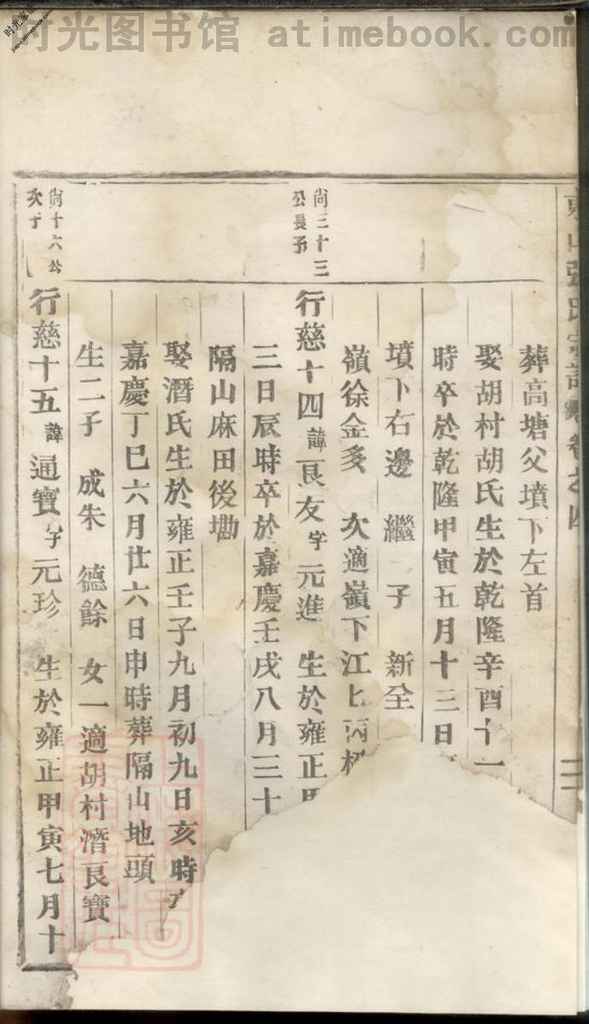 时光图书馆 atimebook.com
葬高塘父墳下左首
娶胡村胡氏生於乾隆辛酉十一
時卒於乾隆甲寅五月十三日
墳下右邊 繼子 新全
嶺徐金多 次適嶺下江
尚三十三公長子
行慈十四 諱 良友 字 元進 生於雍正
三日辰時卒於嘉慶壬戌八月三十
隔山麻田後塝
娶潛氏生於雍正壬子九月初九日亥時
嘉慶丁巳六月廿六日申時葬隔山地頭
生二子 成朱 德餘 女一適胡村潛良寶
尚十六公次子
行慈十五 諱 通寶 字 元珍 生於雍正甲寅七月十